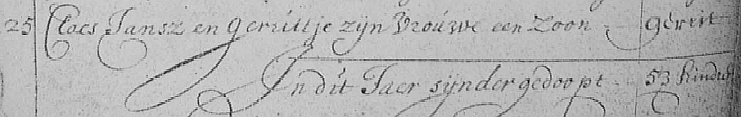 25 Claes Jansz en Gerrittje zijn Vrouwe een Zoon - Gerrit
In dit Jaer sijnder gedoopt - 53 kinder